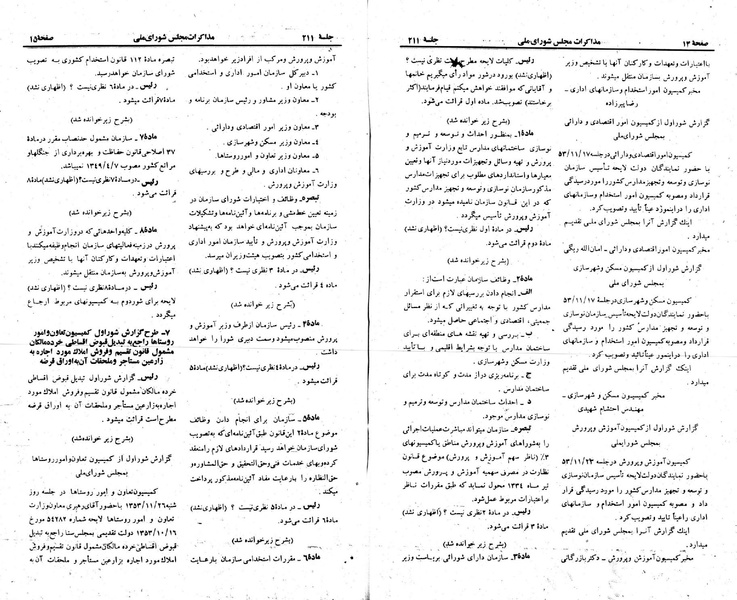 صفحهٔ ۱۴
مذاکرات مجلس شورای ملی
جلسه ۲۱۱
با اعتبارات و تعهدات و کارکنان آنها با تشخیص وزیر
آموزش و پرورش بسازمان منتقل میشوند.
مخبر کمیسیون امور استخدام و سازمانهای اداری -
رضا پیرزاده
گزارش شور اول از کمیسیون امور اقتصادی و دارائی
بمجلس شورای‌ملی
کمیسیون امور اقتصادی و دارائی در جلسه ۵۳/۱۱/۱۷
با حضور نمایندگان دولت لایحه تأسیس سازمان
نوسازی و توسعه و تجهیز مدارس کشور را مورد رسیدگی
قرار داد و مصوبه کمیسیون امور استخدام و سازمانهای
اداری را در این مورد عیناً تأیید و تصویب کرد.
اینک گزارش آنرا بمجلس شورای ملی تقدیم
میدارد.
مخبر کمیسیون امور اقتصادی و دارائی - امان‌الله ریگی
گزارش شور اول از کمیسیون مسکن و شهرسازی بمجلس
شورای ملی
کمیسیون مسکن و شهرسازی در جلسهٔ ۵۳/۱۱/۱۷
با حضور نمایندگان دولت لایحه تأسیس سازمان نوسازی
و توسعه و تجهیز مدارس کشور را مورد رسیدگی
قرار داد و مصوبه کمیسیون امور استخدام و سازمانهای
اداری را در این مورد عیناً تأیید و تصویب کرد.
اینک گزارش آنرا بمجلس شورای ملی تقدیم
میدارد.
مخبر کمیسیون مسکن و شهرسازی -
مهندس احتشام شهیدی
گزارش شور اول از کمیسیون آموزش و پرورش
بمجلس شورایملی
کمیسیون آموزش و پرورش در جلسه ۵۳/۱۱/۲۳
با حضور نمایندگان دولت لایحه تأسیس سازمان نوسازی
و توسعه و تجهیز مدارس کشور را مورد رسیدگی قرار
داد و مصوبه کمیسیون امور استخدام و سازمانهای
اداری را عیناً تأیید و تصویب کرد.
اینک گزارش آنرا بمجلس شورای ملی تقدیم
میدارد.
مخبر کمیسیون آموزش و پرورش - دکتر بازرگانی
رئیس- کلیات لایحه مطرح است نظری نیست؟
(اظهاری نشد) بورود در شور مواد رأی میگیریم خانمها
و آقایانی که موافقند خواهش میکنم قیام فرمایند (اکثر
برخاستند) تصویب شد. ماده اول قرائت میشود.
(بشرح زیر خوانده شد)
مادهٔ۱- بمنظور احداث و توسعه و ترمیم و
نوسازی ساختمانهای مدارس تابع وزارت آموزش و
پرورش و تهیه وسائل و تجهیزات مورد نیاز آنها و تعیین
معیارها و استانداردهای مطلوب برای تجهیزات مدارس
مذکور سازمان نوسازی و توسعه و تجهیز مدارس کشور
که در این قانون سازمان نامیده میشود در وزارت
آموزش و پرورش تأسیس میگردد.
رئیس- در ماده اول نظری نیست؟ (اظهاری نشد)
ماده دوم قرائت میشود.
(بشرح زیر خوانده شد)
مادهٔ۲- وظائف سازمان عبارت است از:
الف- انجام دادن بررسیهای لازم برای استقرار
مدارس کشور با توجه به تغییراتی که از نظر مسائل
جمعیتی، اقتصادی و اجتماعی حاصل میشود.
ب- بررسی و تهیه نقشه های منطقه‌ای برای
ساختمان مدارس با توجه بشرایط اقلیمی و با تأیید
وزارت مسکن و شهرسازی.
ج- برنامه‌ریزی دراز مدت و کوتاه مدت برای
ساختمان مدارس.
د- احداث ساختمان مدارس و توسعه و ترمیم و
نوسازی مدارس موجود.
تبصره- سازمان میتواند مباشرت عملیات اجرائی
را به شوراهای آموزش و پرورش مناطق یا کمیسیونهای
۳٪ (ناظر سهم آموزش و پرورش) موضوع قانون
نظارت در مصرف سهمیه آموزش و پرورش مصوب
تیر ماه ۱۳۳۴ محول نماید که طبق مقررات ناظر
بر اعتبارات مربوط عمل شود.
رئیس- در ماده ۲ نظری نیست؟ (اظهاری نشد)
مادهٔ ۳ قرائت میشود.
(بشرح زیر خوانده شد)
مادهٔ۳- سازمان دارای شورائی بریاست وزیر
جلسهٔ ۲۱۱
مذاکرات مجلس شورای ملی
صفحهٔ ۱۵
آموزش و پرورش و مرکب از افراد زیر خواهد بود.
۱- دبیر کل سازمان امور اداری و استخدامی
کشور یا معاون او.
۲- معاون وزیر مشاور و رئیس سازمان برنامه و
بودجه.
۳- معاون وزیر امور اقتصادی و دارائی.
۴- معاون وزیر مسکن و شهرسازی.
۵- معاون وزیر تعاون و امور روستاها.
۶- معاونان اداری و مالی و طرح و بررسیهای
وزارت آموزش و پرورش.
تبصره- وظائف و اختیارات شورای سازمان در
زمینه تعیین خط‌مشی و برنامه‌ها و آئین‌نامه‌ها و تشکیلات
سازمان بموجب آئین‌نامه‌ای خواهد بود که به پیشنهاد
وزارت آموزش و پرورش و تأیید سازمان امور اداری
و استخدامی کشور بتصویب هیئت وزیران میرسد.
رئیس- در مادهٔ ۳ نظری نیست؟ (اظهاری نشد)
مادهٔ ۴ قرائت میشود.
(بشرح زیر خوانده شد)
مادهٔ۴- رئیس سازمان از طرف وزیر آموزش و
پرورش منصوب میشود و سمت دبیری شورا را خواهد
داشت
رئیس- در مادهٔ ۴ نظری نیست؟ (اظهاری نشد) مادهٔ ۵
قرائت میشود.
(بشرح زیر خوانده شد)
مادهٔ۵- سازمان برای انجام دادن وظائف
موضوع مادهٔ ۲ این قانون طبق آئین‌نامه‌ای که به تصویب
شورای سازمان خواهد رسید قراردادهای لازم را منعقد
کرده و بهای خدمات فنی و حق‌التحقیق و حق‌المشاوره و
حق‌النظاره را با رعایت مفاد آئین‌نامه مذکور پرداخت
میکند.
رئیس- در مادهٔ ۵ نظری نیست؟ (اظهاری نشد)
مادهٔ ۶ قرائت میشود.
(بشرح زیر خوانده شد)
مادهٔ۶- مقررات استخدامی سازمان با رعایت
تبصره مادهٔ ۱۱۲ قانون استخدام کشوری به تصویب
شورای سازمان خواهد رسید.
رئیس- در ماده ۶ نظری نیست؟ (اظهاری نشد)
مادهٔ ۷ قرائت میشود.
(بشرح زیر خوانده شد)
مادهٔ۷- سازمان مشمول حد نصاب مقرر در مادهٔ
۳۷ اصلاحی قانون حفاظت و بهره‌برداری از جنگلها و
مراتع کشور مصوب ۱۳۴۹/۴/۷ نمیباشد.
رئیس- در مادهٔ ۷ نظری نیست؟ (اظهاری نشد) مادهٔ ۸
قرائت میشود.
(بشرح زیر خوانده شد)
مادهٔ۸- کلیه واحدهائی که در وزارت آموزش و
پرورش در زمینه فعالیتهای سازمان انجام وظیفه میکنند با
اعتبارات و تعهدات و کارکنان آنها با تشخیص وزیر
آموزش و پرورش به سازمان منتقل میشوند.
رئیس- در مادهٔ ۸ نظری نیست؟ (اظهاری نشد)
لایحه برای شور دوم به کمیسیونهای مربوط ارجاع
میگردد.
۷- طرح گزارش شور اول کمیسیون تعاون و امور
روستاها راجع به تبدیل قبوض اقساطی خرده مالکان
مشمول قانون تقسیم و فروش املاک مورد اجاره به
زارعین مستأجر و ملحقات آن به اوراق قرضه
رئیس- گزارش شور اول تبدیل قبوض اقساطی
خرده مالکان مشمول قانون تقسیم و فروش املاک مورد
اجاره به زارعین مستأجر و ملحقات آن به اوراق قرضه
مطرح است قرائت میشود.
(بشرح زیر خوانده شد)
گزارش شور اول از کمیسیون تعاون و امور روستاها
بمجلس شورای ملی
کمیسیون تعاون و امور روستاها در جلسه روز
شنبه ۱۳۵۳/۱۱/۲۶ با حضور آقای رهبری معاون وزارت
تعاون و امور روستاها لایحه شماره ۵۴۲۸۲ مورخ
۱۳۵۳/۱۰/۱۶ دولت تقدیمی بمجلس سنا راجع به تبدیل
قبوض اقساطی خرده مالکان مشمول قانون تقسیم و فروش
املاک مورد اجاره بزارعین مستأجر و ملحقات آن به